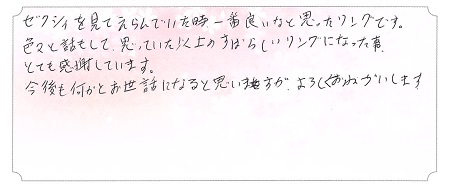 ゼクシィを見てえらんでいた時一番良いなと思ったリングです。
色々と話もして、思っていた以上のすばらしいリングになった事、
とても感謝しています。
今後も何かとお世話になると思いますが、よろしくおねがいします